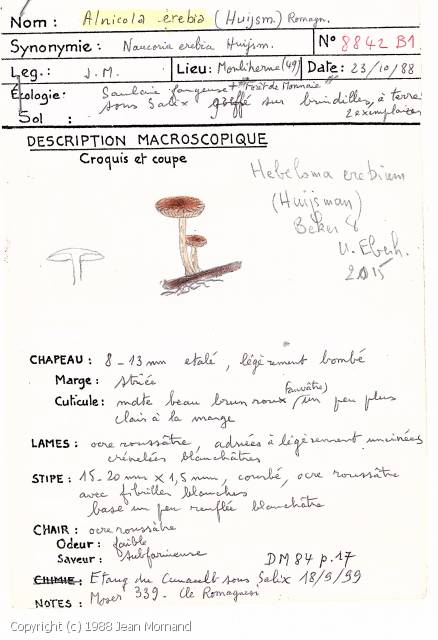 Nom : Alnicola erebia (Huijsm.) Romagn.
Synonymie : Naucoria erebia Huijsm. N° 8842 B1
Leg. : J.M. Lieu : Montlherne (49) Date : 23/10/88
Écologie : Saulaie fangeuse + "Forêt de Monnaie"
Sol : sous Salix sur brindilles, à terre
2 exemplaires
DESCRIPTION MACROSCOPIQUE
Croquis et coupe
Hebeloma erebium
(Huijsman)
Beker &
U. Eberh.
2015
CHAPEAU : 8 - 13 mm etalé, légèrement bombé
Marge : striée
Cuticule : mate beau brun roux (fauvâtre) un peu plus
clair à la marge
LAMES : ocre roussâtre, adnées à légèrement uncinées
crénelées blanchâtres
STIPE : 15-20 mm x 1,5 mm, courbé, ocre roussâtre
avec fibrilles blanches
base un peu renflée blanchâtre
CHAIR : ocre roussâtre
Odeur : faible
Saveur : subfarineuse DM 84 p.17
CHIMIE : Etang du sous Salix 18/9/99
NOTES : Moser 339. Cle Romagnesi
Copyright (c) 1988 Jean Mornand